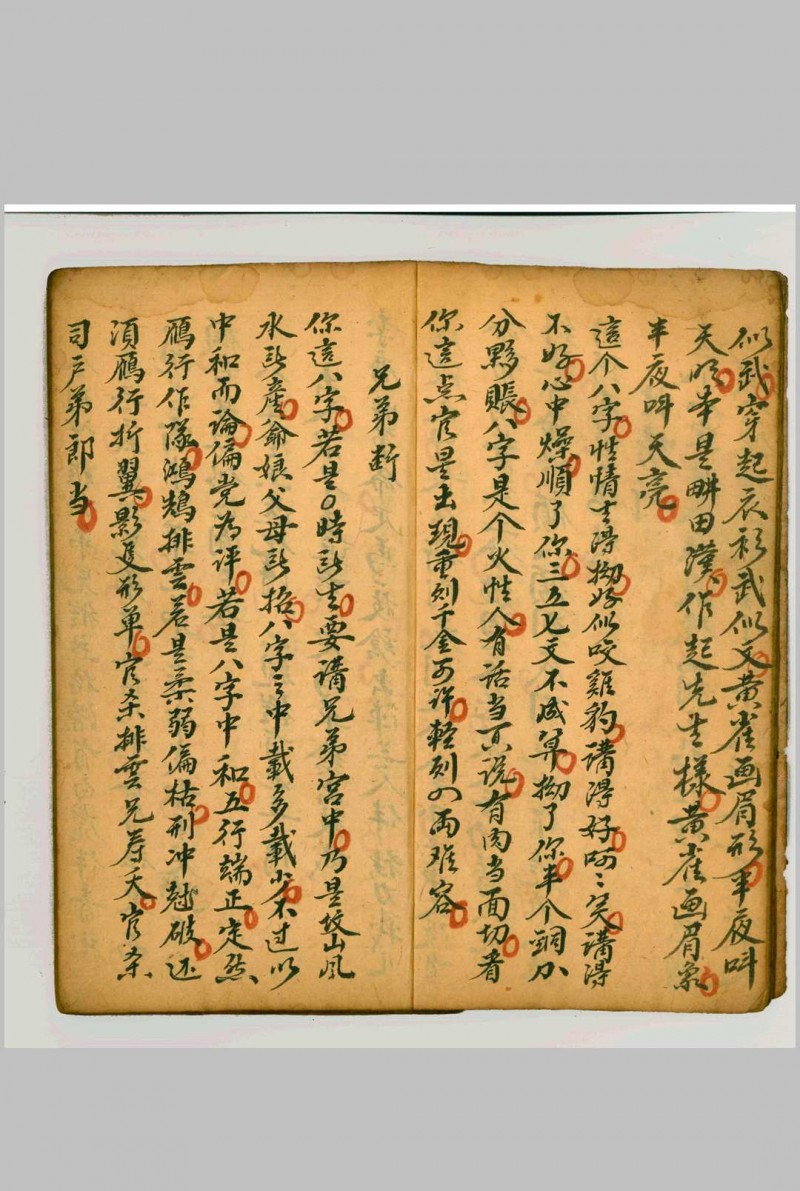 似武穿起衣衫武似文黄雀画眉形半夜呌
天明本是畊田漢作起先生樣黄雀画眉象
半夜呌天亮
這个八字性情生得拗好似咬雞豹講得好呵〻笑講得
不好心中燥順了你三五七文不減算拗了你半个銅刀
分夥賬八字是个火性人有話当面说有肉当面切看
你這点官星出現重刻千金可許輕刻四両难容
兄弟断
你這八字若是○時所生要講兄弟宫中乃是坟山風
水所產爺娘父母所招八字之中載多載少不过以
中和而論偏党为评若是八字中和五行端正定然
鴈行作隊鴻鵠排雲若是柔弱偏枯刑冲尅破还
須鴈行折翼影隻形单官杀排雲兄寿夭官杀
司户弟郎当